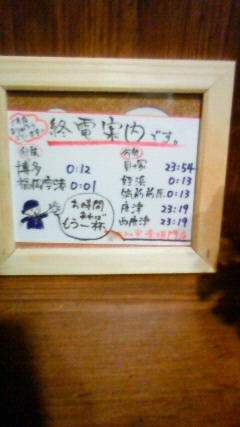 終電案内です。
方面
博多 0:12
福岡空港 0:01
方面
貝塚 23:54
姪浜 0:13
筑前前原 0:13
唐津 23:19
西唐津 23:19
お時間
あれば
もう一杯